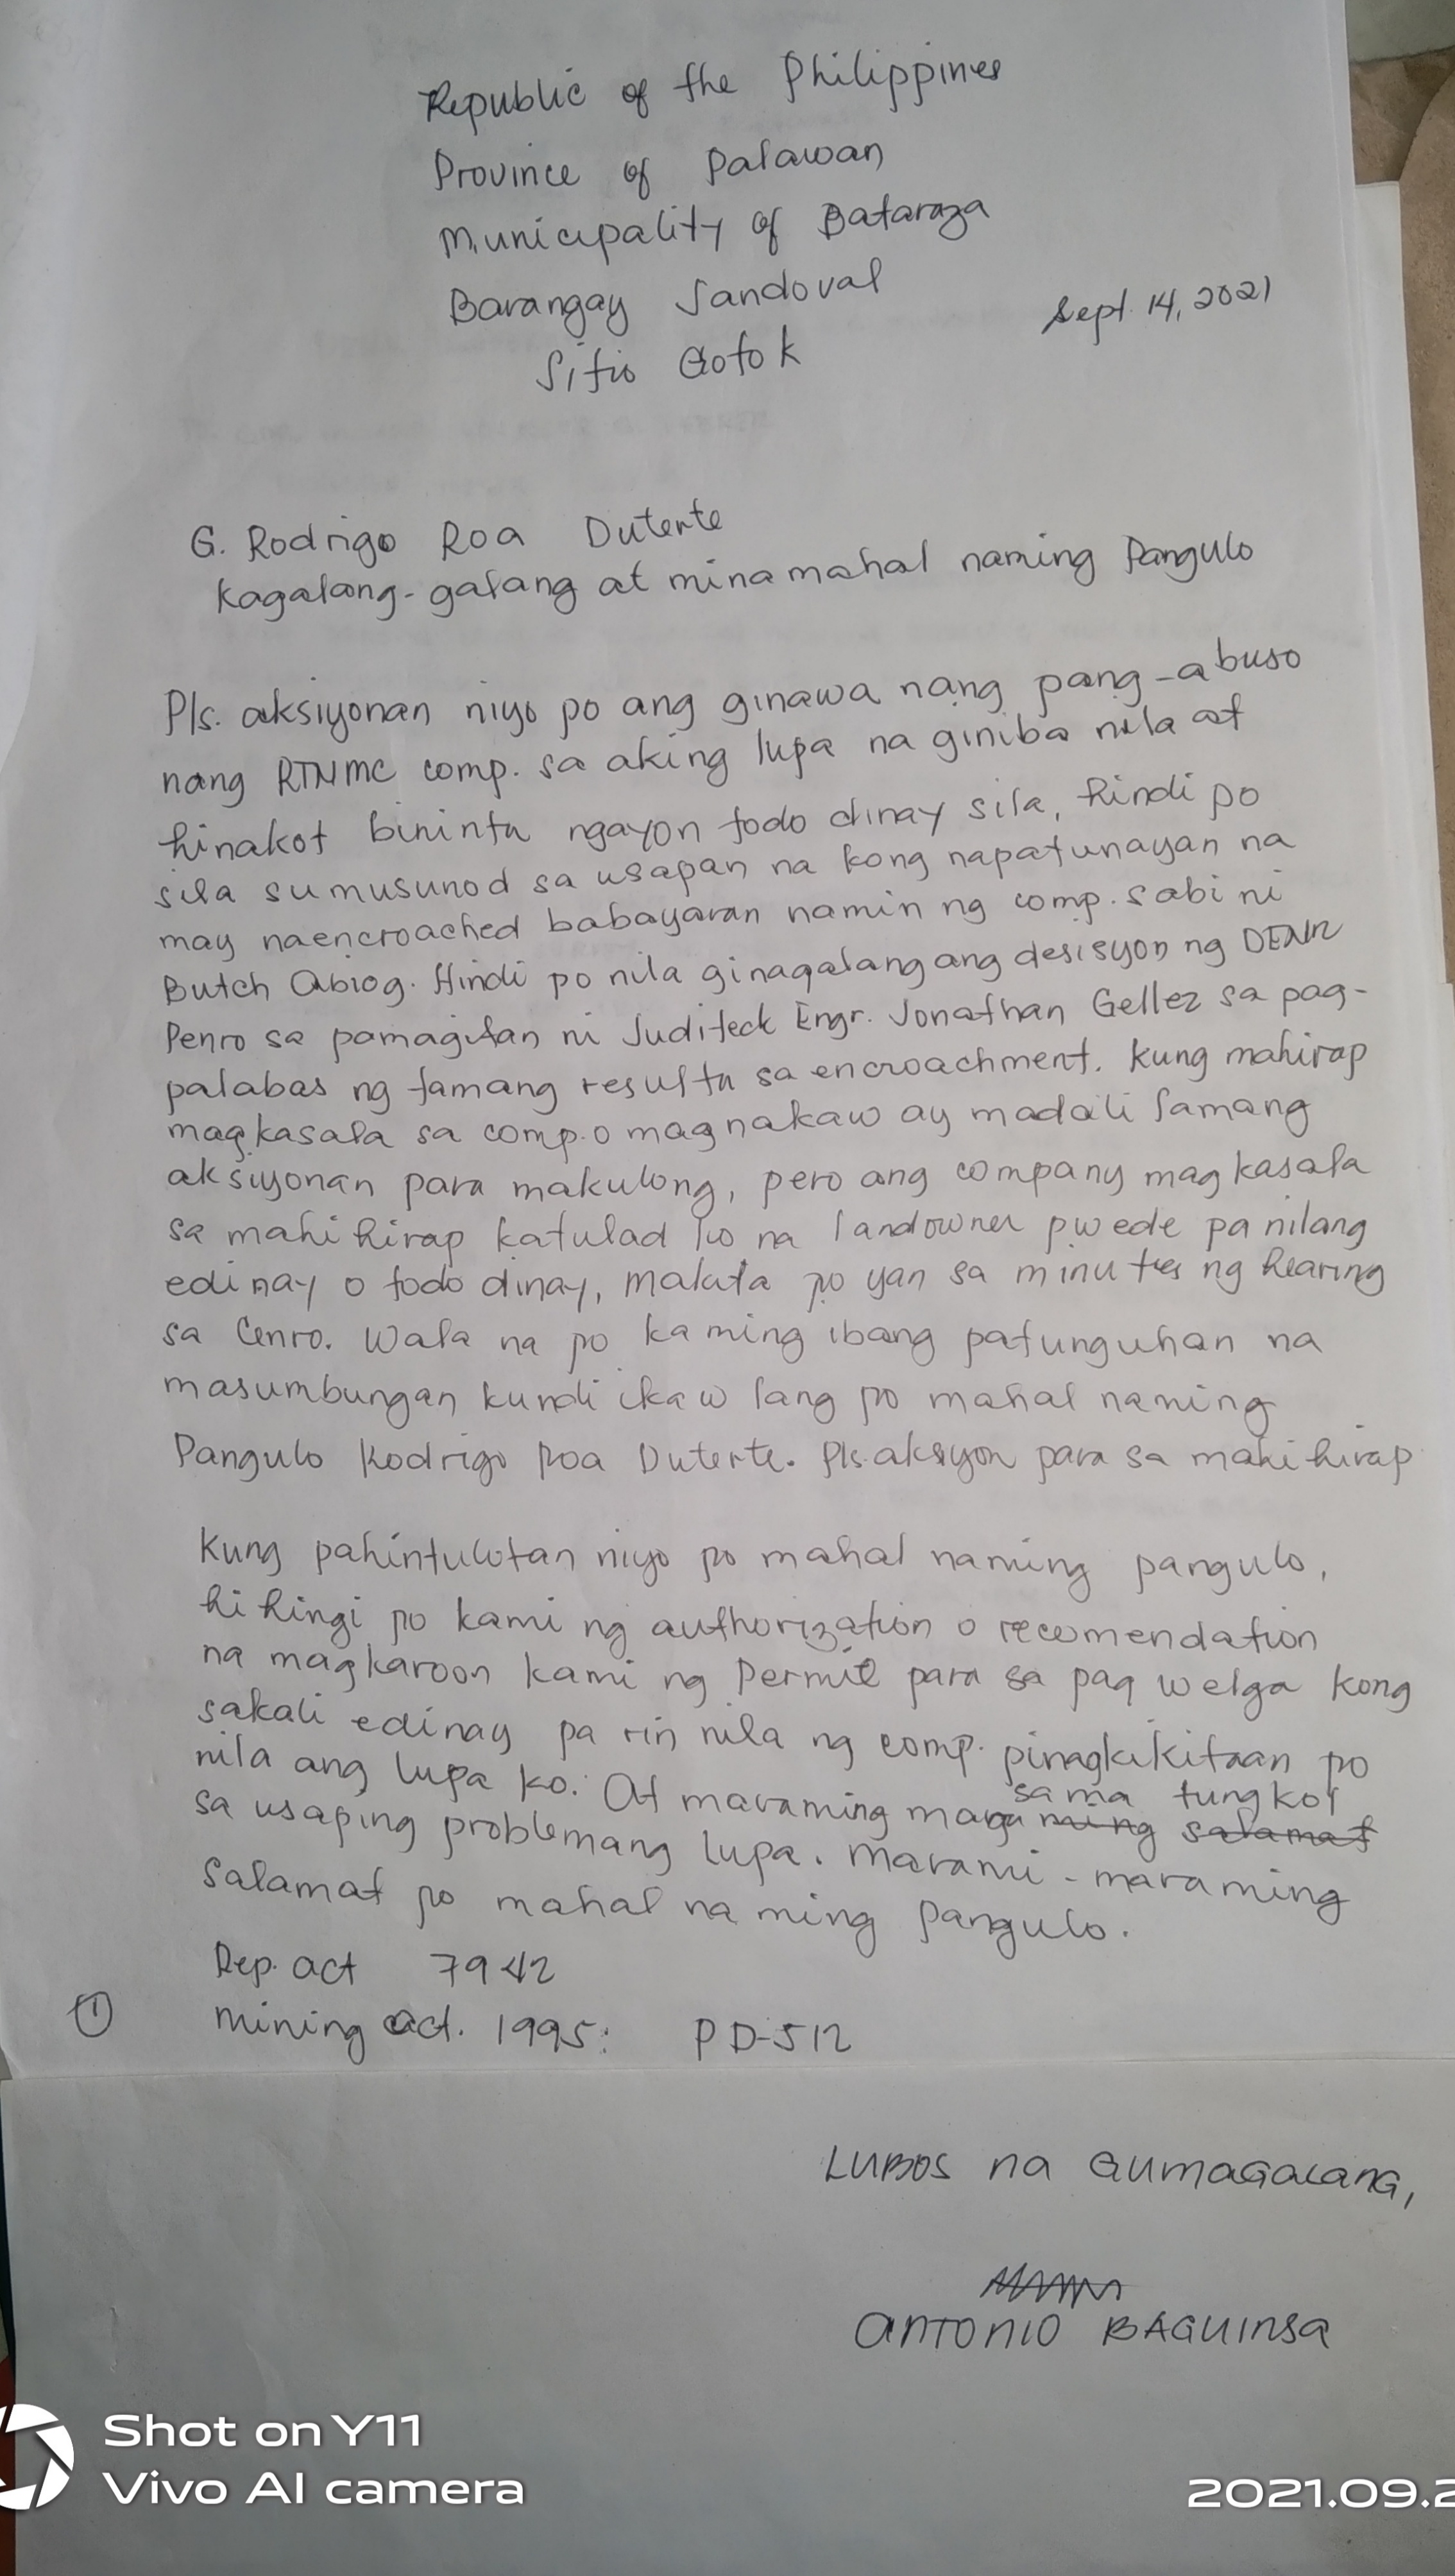 Republic of the Philippines
Province of Palawan
Municipality of Bataraza
Barangay Sandoval
Sept. 14, 2021
Sitio Gotok
G. Rodrigo Roa Duterte
Kagalang-galang at minamahal naming Pangulo
Pls. aksiyonan niyo po ang ginawa nang pang-abuso
nang RTNMC comp. sa aking lupa na giniba nila at
hinakot bininta ngayon todo dinay sila, hindi po
sila sumusunod sa usapan na kong napatunayan na
may naencroached babayaran namin ng comp. sabi ni
Butch Abiog. Hindi po nila ginagalang ang desisyon ng DENR
Penro sa pamagitan ni Juditeck Engr. Jonathan Gellez sa pag-
palabas ng tamang resulta sa encroachment. Kung mahirap
magkasala sa comp. o magnakaw ay madali lamang
aksiyonan para makulong, pero ang company magkasala
sa mahihirap katulad ko na landowner pwede pa nilang
edinay o todo dinay, makita po yan sa minutes ng hearing
sa Cenro. Wala na po kaming ibang patunguhan na
masumbungan kundi ikaw lang po mahal naming
Pangulo Rodrigo Roa Duterte. Pls. aksyon para sa mahihirap
Kung pahintulotan niyo po mahal naming pangulo,
hihingi po kami ng authorization o recomendation
na magkaroon kami ng Permit para sa pag welga kong
sakali edinay pa rin nila ng comp. pinagkikitaan po
nila ang lupa ko. At maraming masama tungkol
sa usaping problemang lupa. Marami-maraming
salamat po mahal naming pangulo.
Rep. act 7942
① Mining act. 1995: PD-512
LUBOS na GUMAGALANG,
ANTONIO BAGUINSA
Shot on Y11
Vivo AI camera
2021.09.2